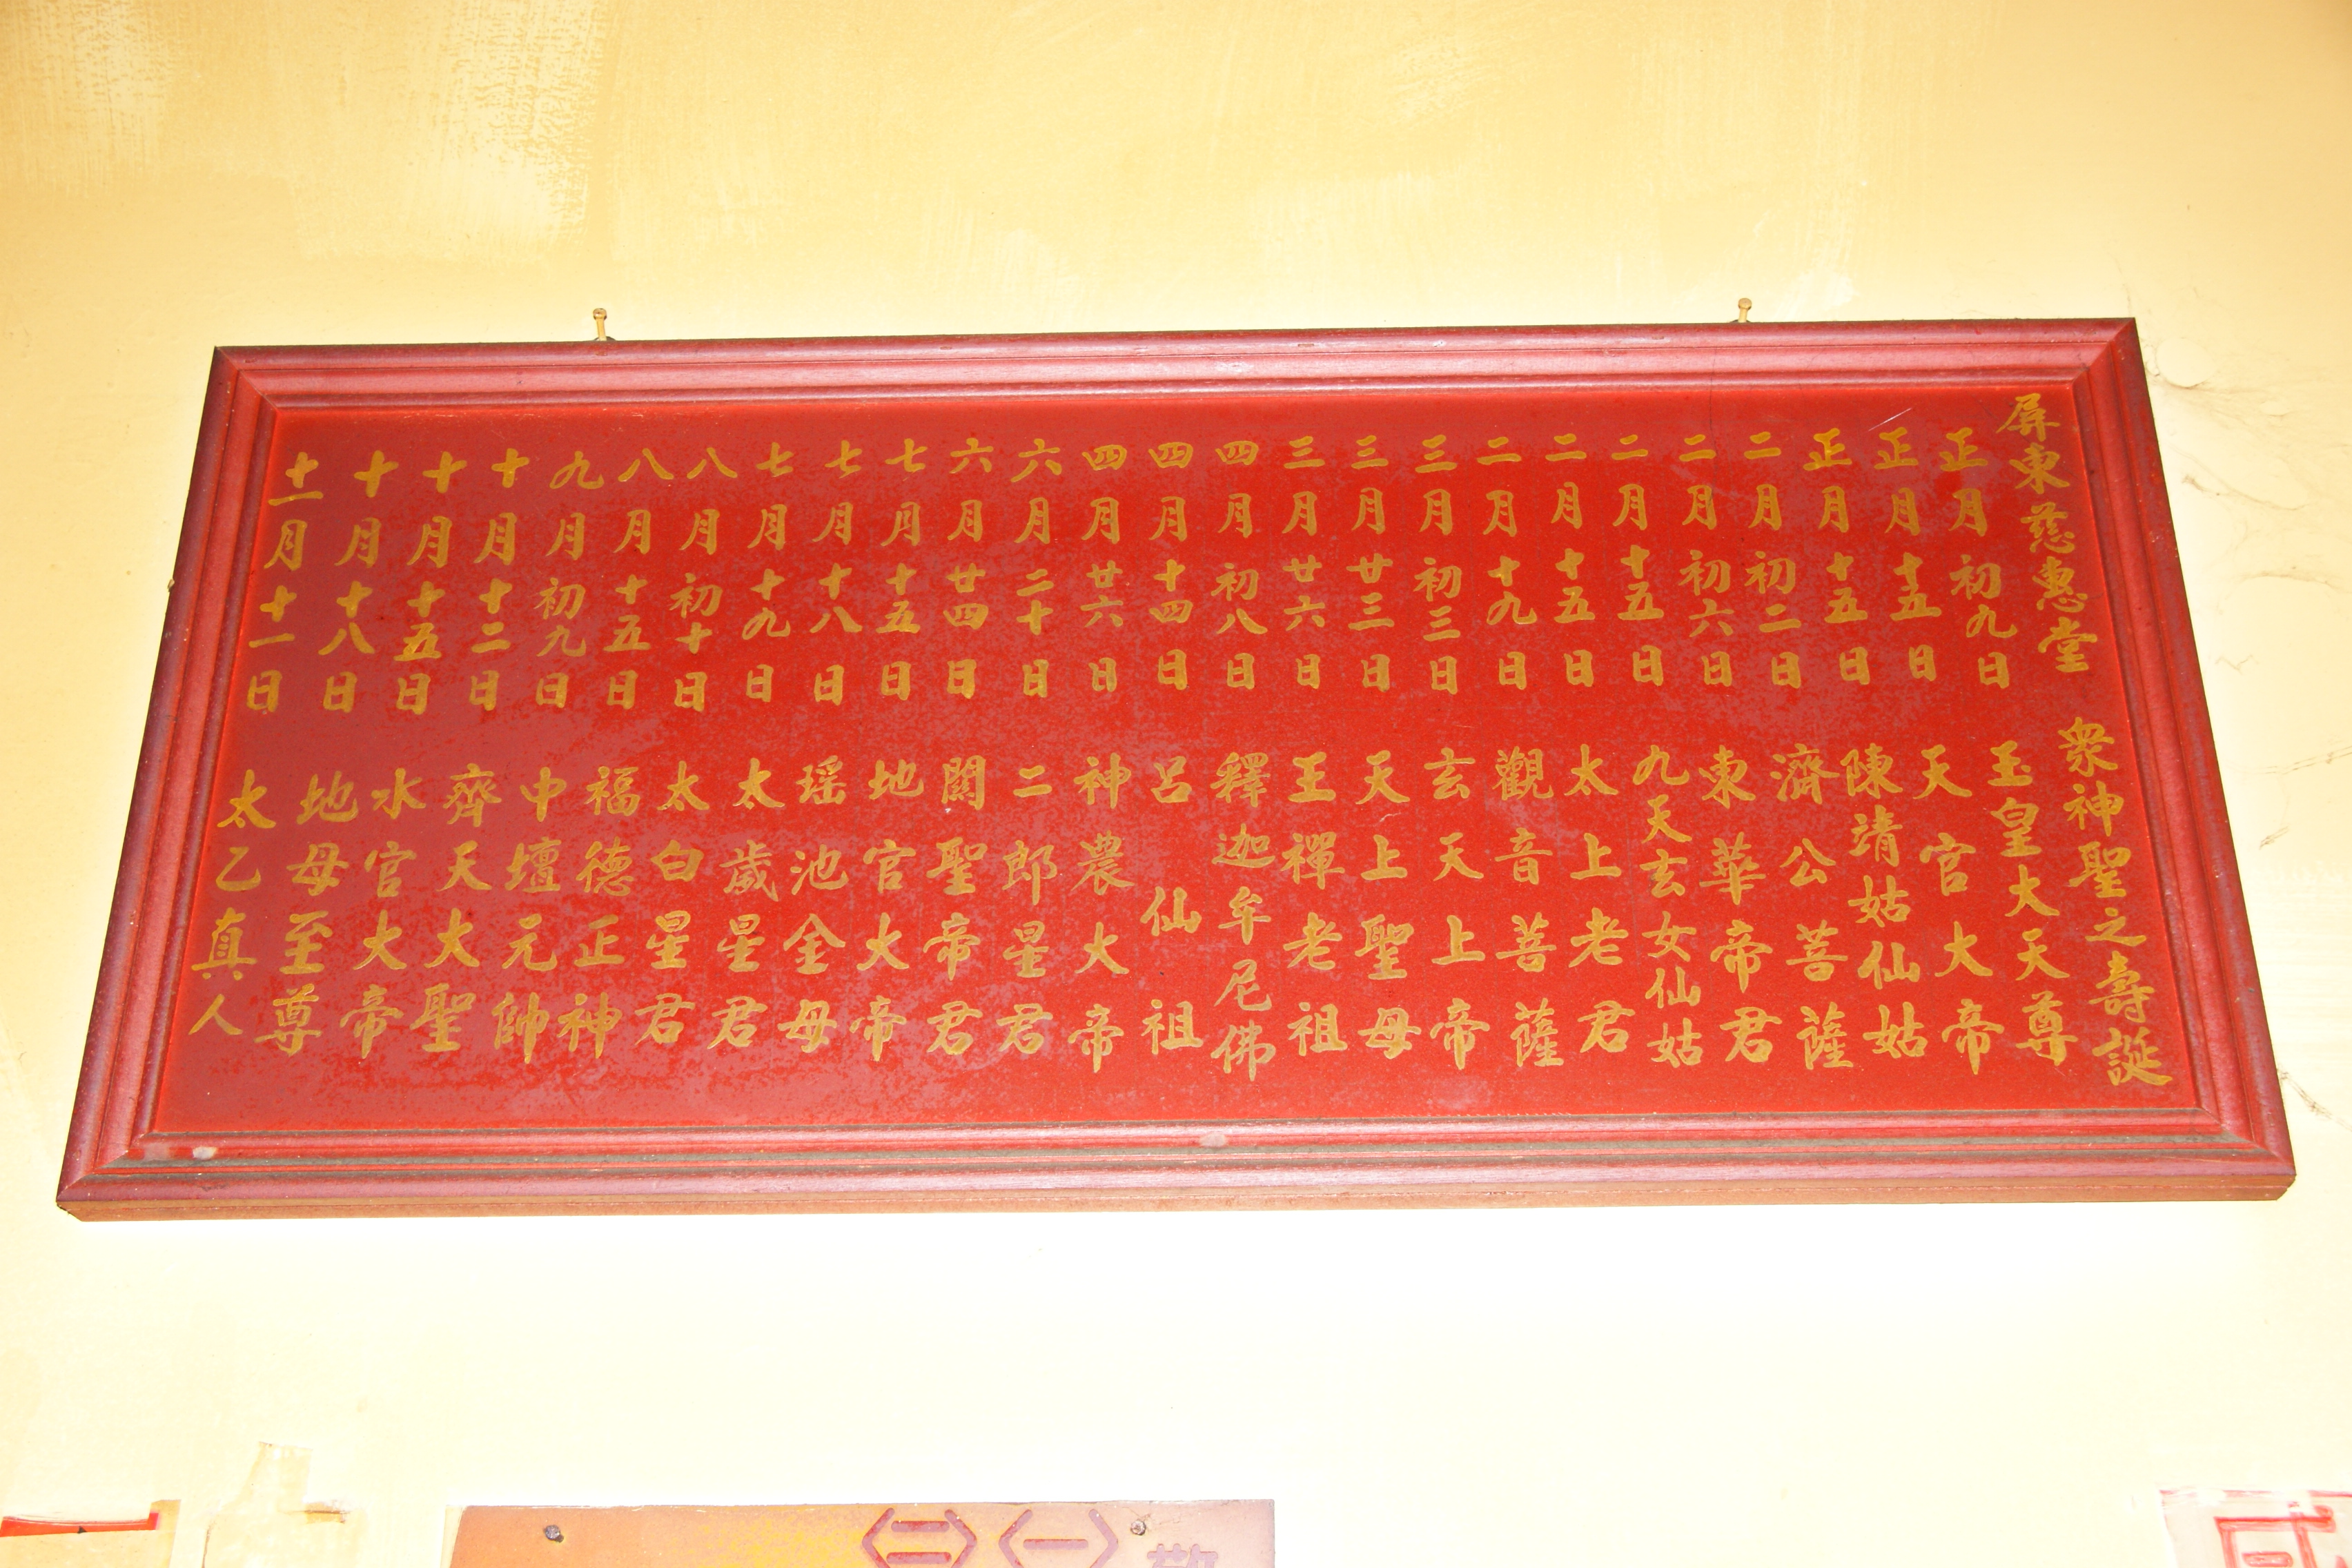 屏東慈惠堂 衆神聖之壽誕
正月初九日 玉皇大天尊
正月十五日 天官大帝
正月十五日 陳靖姑仙姑
二月初二日 濟公菩薩
二月初六日 東華帝君
二月十五日 九天玄女仙姑
二月十五日 太上老君
二月十九日 觀音菩薩
三月初三日 玄天上帝
三月廿三日 天上聖母
三月廿六日 王禪老祖
四月初八日 釋迦牟尼佛
四月十四日 呂仙祖
四月廿六日 神農大帝
六月二十日 二郎星君
六月廿四日 關聖帝君
七月十五日 地官大帝
七月十八日 瑶池金母
七月十九日 太歲星君
八月初十日 太白星君
八月十五日 福德正神
九月初九日 中壇元帥
十月十二日 齊天大聖
十月十五日 水官大帝
十月十八日 地母至尊
十一月十一日 太乙真人
敬
〈一〉
〈二〉